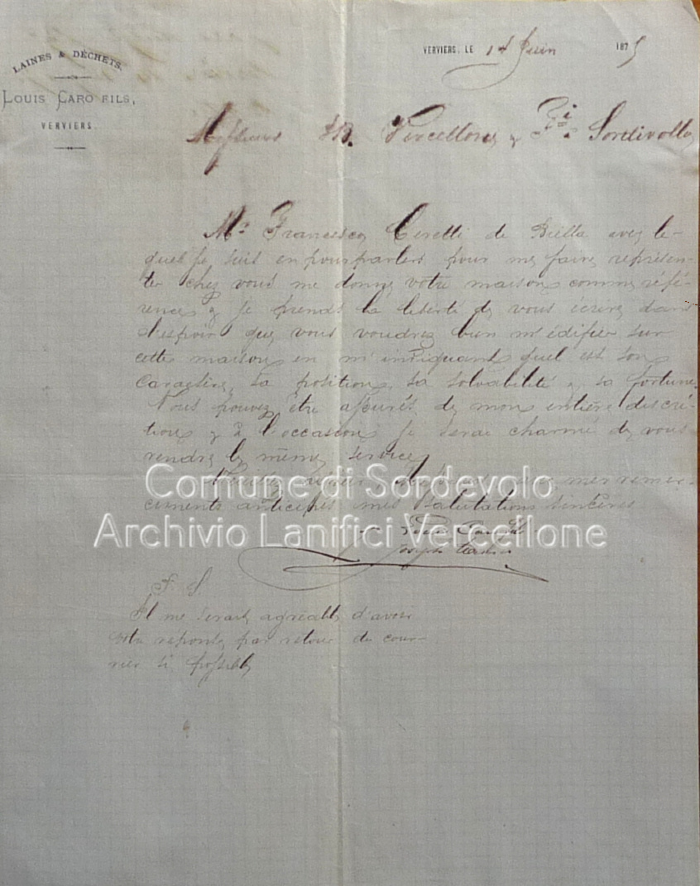 LAINES & DÉCHETS.
LOUIS CARO FILS,
VERVIERS.
VERVIERS, LE 14 Juin 1875
Messieurs Vercellone & Sordevollo
Mr Francesco de Biella avec le-
quel je suis en pourparlers pour me faire représen-
ter chez vous me donne votre maison comme réfé-
rence & je prends la liberté de vous écrire dans
l'espoir que vous voudrez bien m'édifier sur
cette maison en m'indiquant quel est son
caractère, sa position, sa solvabilité & sa fortune
Vous pouvez être assurés de mon entière discré-
tion & à l'occasion je serai charmé de vous
rendre le même service
mes remer-
ciements anticipés mes salutations sincères
Joseph
P. S
Il me serait agréable d'avoir
votre réponse par retour du cour-
rier si possible
Comune di Sordevolo
Archivio Lanifici Vercellone